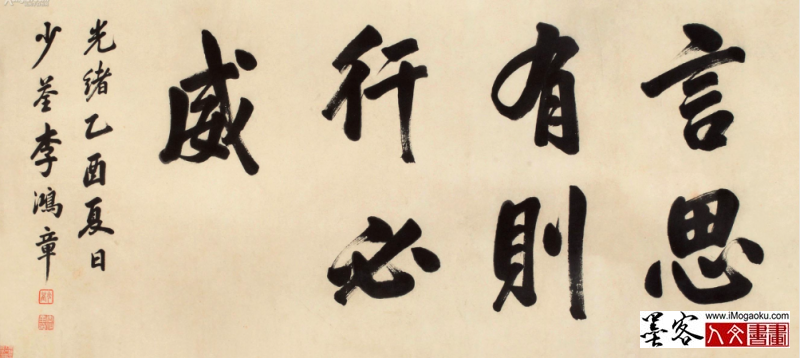 言思
有則
行必
威
光緒乙酉夏日
少荃李鴻章
www.iMogaoku.com
墨客人文書畫